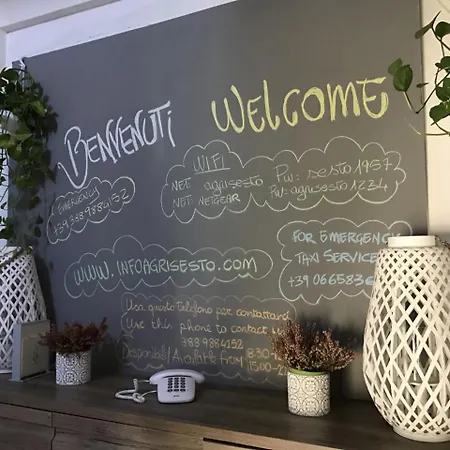 BENVENUTI
WELCOME
WIFI
NET: agrisesto PW: sesto1957
NET: NETGEAR PW: agrisesto1234
EMERGENCY
+39 3389884152
WWW.INFOAGRISESTO.COM
FOR EMERGENCY
TAXI SERVICE
+39 0665836
Usa questo telefono per contattarci
Use this phone to contact
3389884152
Disponibili/Available from 8:30-
15:00-2